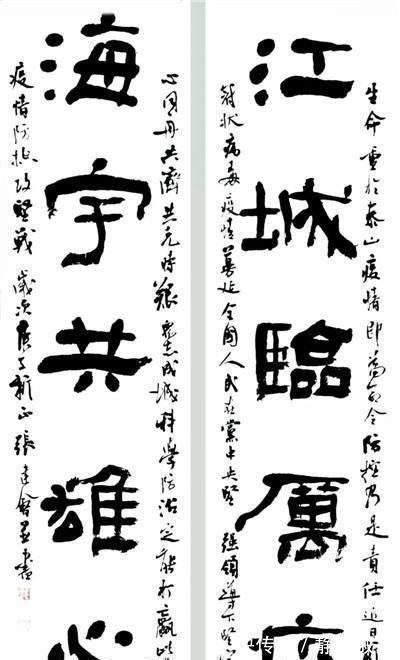 生命重於泰山疫情即為命令防控乃是責任近日新
江城臨厲疫
冠狀病毒疫情蔓延全國人民在黨中央堅強領導下堅
心同舟共濟共克時艱眾志成城科學防治定能打贏此
海宇共雄心
疫情防控攻堅戰 歲次庚子新正張建會並書